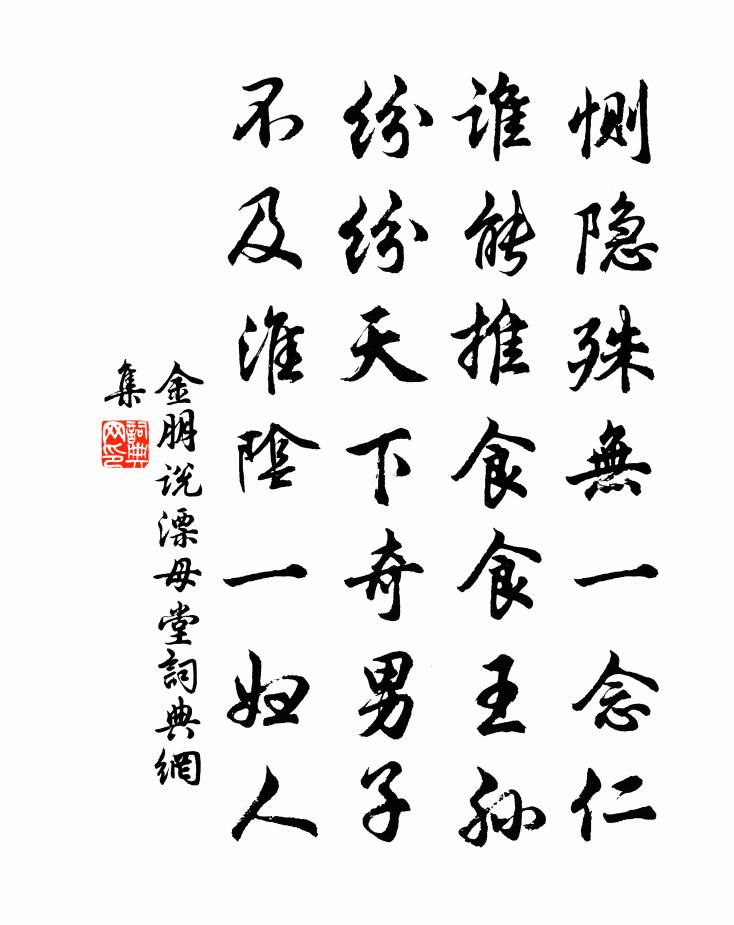 惻隐殊無一念仁
谁能推食食王孙
纷纷天下奇男子
不及淮陰一妇人
金朋说漂母堂詞典網
集
詞典
网印